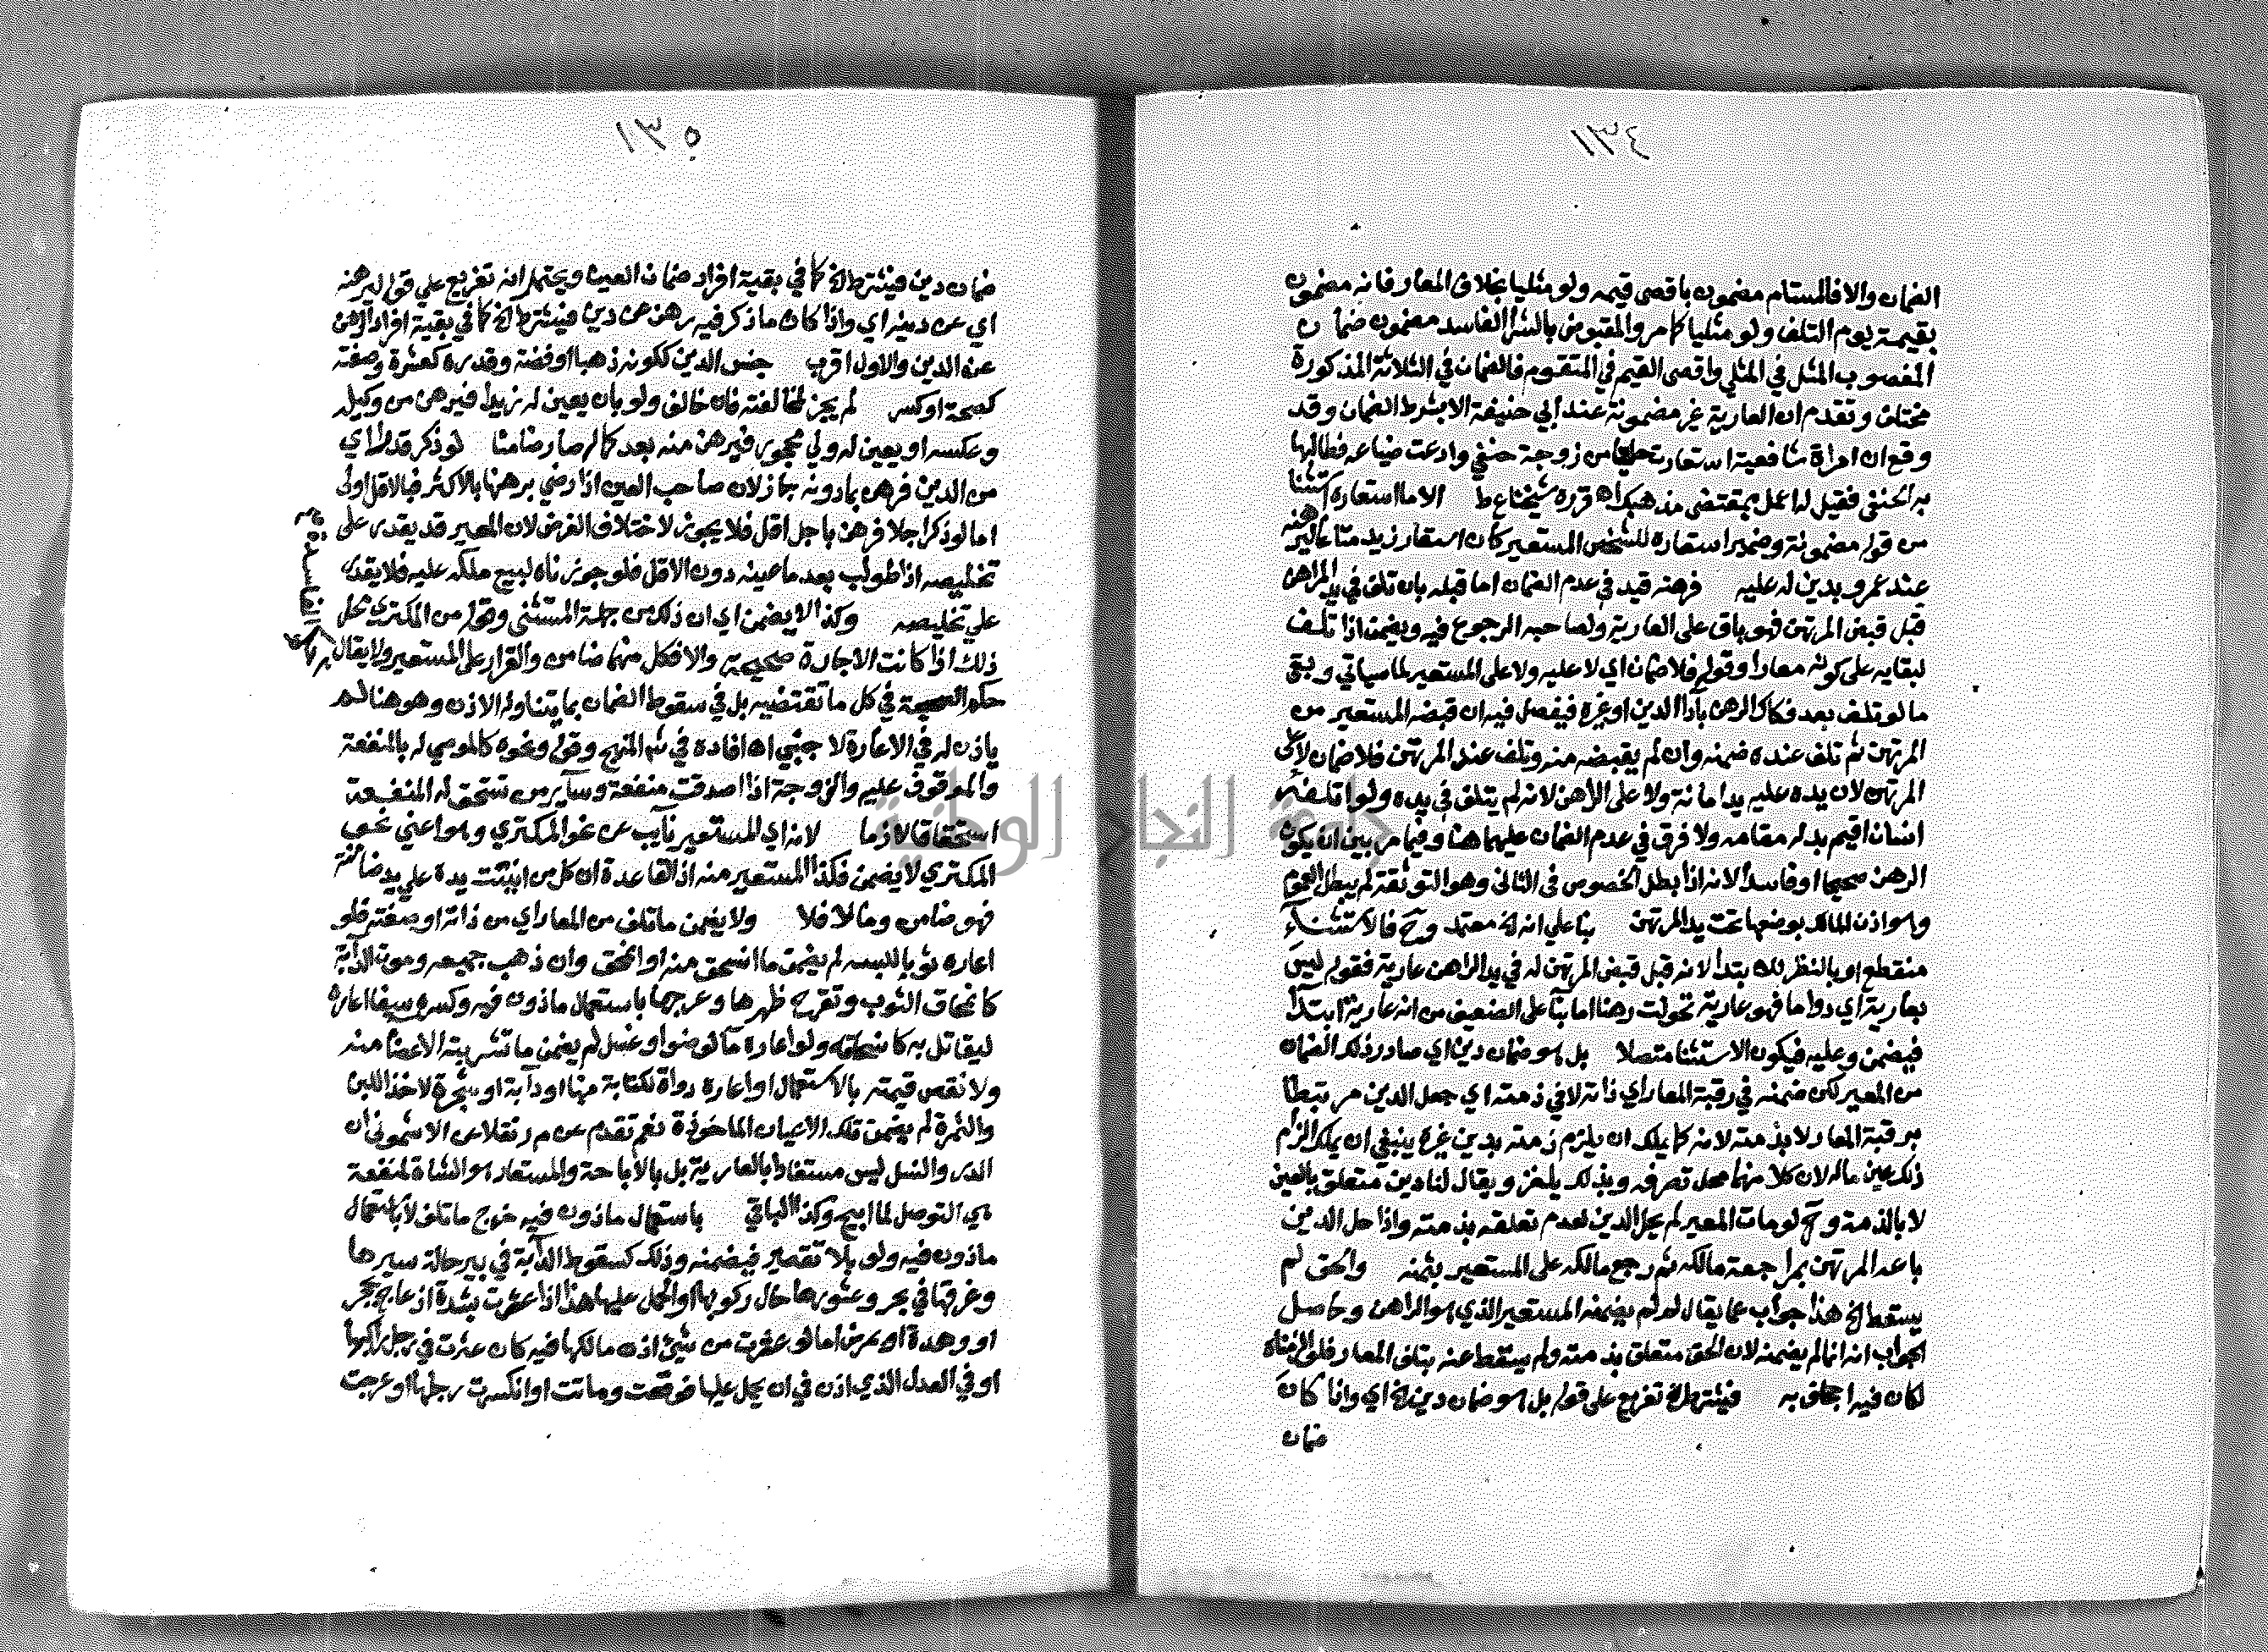 ١٣٤
الضمان والا فالمستام مضمون باقصى قيمه ولو مثليا بخلاف المعار فانه مضمون
بقيمته يوم التلف ولو مثليا كما مر والمقبوض بالشرا الفاسد مضمون ضمان
المغصوب المثل في المثلي واقصى القيم في المتقوم فالضمان في الثلاثة المذكورة
مختلف وتقدم ان العارية غير مضمونة عند ابي حنيفة الا بشرط الضمان وقد
وقع ان امراة شافعية استعارت حليا من زوجة حنفي وادعت ضياعه فطالبها
به الحنفي فقيل له اعمل بمقتضى مذهبك اهـ قرره شيخنا ع ط الا ما استعاره استثنا
من قوله مضمونة وضمير استعاره للشخص المستعير كان استعار زيد متاعا ليرهنه
عند عمرو بدين له عليه فرهنه قيد في عدم الضمان اما قبله بان تلف في يد الراهن
قبل قبض المرتهن فهو باق على العارية ولصاحبه الرجوع فيه ويضمن اذا تلف
لبقايه على كونه معارا وقوله فلا ضمان اي لا عليه ولا على المستعير لما سياتي وبقى
ما لو تلف بعد فكاك الرهن بادا الدين او غيره فيفصل فيه ان قبضه المستعير من
المرتهن ثم تلف عنده ضمنه وان لم يقبضه منه وتلف عند المرتهن فلا ضمان لا على
المرتهن لان يده عليه يد امانة ولا على الراهن لانه لم يتلف في يده ولو اتلفه
انسان اقيم بدله مقامه ولا فرق في عدم الضمان عليهما هنا وفيما مر بين ان يكون
الرهن صحيحا او فاسدا لانه اذا بطل الخصوص في الثاني وهو التوثقة لم يبطل العموم
وهو اذن المالك بوضعها تحت يد المرتهن بنا علي انه الخ معتمد وح فالاستثناء
منقطع او بالنظر للابتدا لانه قبل قبض المرتهن له في يد الراهن عارية فقوله ليس
بعارية اي دواما فهو عارية تحولت رهنا اما بنا على الضعيف من انه عارية ابتدا
فيضمن وعليه فيكون الاستثنا متصلا بل هو ضمان دين اي صادر ذلك الضمان
من المعير لكن ضمنه في رقبة المعار اي ذاته لا في ذمته اي جعل الدين مرتبطا
برقبة المعار لا بذمته لانه كما يملك ان يلزم ذمته بدين غيره ينبغي ان يملك الزام
ذلك عين ماله لان كلا منهما محل تصرفه وبذلك يلغز ويقال لنا دين متعلق بالعين
لا بالذمة وح لو مات المعير لم يحل الدين لعدم تعلقه بذمته واذا حل الدين
باعه المرتهن بمراجعة مالكه ثم رجع مالكه على المستعير بثمنه والحق لم
يسقط الخ هذا جواب عما يقال لو لم يضمنه المستعير الذي هو الراهن وحاصل
الجواب انه انما لم يضمنه لان الحق متعلق بذمته ولم يسقط عنه بتلف المعار فلو الزمناه
لكان فيه اجحاف به فيشترط الخ تفريع على قوله بل هو ضمان دين الخ اي واذا كان
ضمان
١٣٥
ضمان دين فيشترط الخ كما في بقية افراد ضمان العين ويحتمل انه تفريع علي قوله ليرهنه
اي عن دينه اي واذا كان ما ذكر فيه رهن عن دين فيشترط الخ كما في بقية افراد الرهن
عن الدين والاول اقرب جنس الدين ككونه ذهبا او فضة وقدره كعشرة وصفته
كصحة او كسر لم يجز مخالفته فان خالف ولو بان يعين له زيدا فيرهن من وكيله
وعكسه او يعين له ولي محجور فيرهن منه بعد كماله صار ضامنا لو ذكر قدرا اي
من الدين فرهن بما دونه جاز لان صاحب العين اذا رضي برهنها بالاكثر فبالاقل اولى
اما لو ذكر اجلا فرهن باجل اقل فلا يجوز لاختلاف الغرض لان المعير قد يقدر على
تخليصه اذا طولب بعد ما عينه دون الاقل فلو جوزناه لبيع ملكه عليه فلا يقدر
علي تخليصه وكذا لا يضمن اي ان ذلك من جملة المستثنى وقوله من المكتري محل
ذلك اذا كانت الاجارة صحيحة والا فكل منهما ضامن والقرار على المستعير ولا يقال
حكم الصحيحة في كل ما تقتضيه بل في سقوط الضمان بما يتناوله الاذن وهو هنا لم
ياذن له في الاعارة لاجنبي اهـ افاده في شم المنهج وقوله ونحوه كالموصي له بالمنفعة
والموقوف عليه والزوجة اذا اصدقت منفعة وساير من تستحق له المنفعة
استحقاقا لازما لانه اي المستعير نايب عن نحو المكتري وهو اعني نحو
المكتري لا يضمن فكذا المستعير منه اذ القاعدة ان كل من انبنت يده علي يد ضامنة
فهو ضامن وما لا فلا ولا يضمن ما تلف من المعار اي من ذاته او صفته فلو
اعاره ثوبا للبسه لم يضمن ما انسحق منه او انمحق وان ذهب جميعه وموت الدابة
كانمحاق الثوب وتقرح ظهرها وعرجها باستعمال ماذون فيه وكسره سيفا اعاره
ليقاتل به كانسحاقه ولو اعاره ما لوضوا او غسل لم يضمن ما تشربته الاعضا منه
ولا نقص قيمته بالاستعمال او اعاره دواة لكتابة منها او دابة او شجرة لاخذ اللبن
والثمرة لم يضمن تلك الاعيان الماخوذة نعم تقدم عن م ر نقلا عن الاشموني ان
الدر والنسل ليس مستفادا بالعارية بل بالاباحة والمستعار هو الشاة لمنفعة
هي التوصل لما ابيح وكذا الباقي باستعمال ماذون فيه خرج ما تلف لا باستعمال
ماذون فيه ولو بلا تقصير فيضمنه وذلك كسقوط الدابة في بير حالة سيرها
وغرقها في بحر وعثورها حال ركوبها او الحمل عليها هذا اذا عثرت بشدة ازعاج او بحجر
او وهدة او بعرض اما لو عثرت من شيئ اذن مالكها فيه كان عثرت في رجل راكبها
او في العدل الذي اذن في ان يحمل عليها فوقعت وماتت او انكسرت رجلها او عرجت